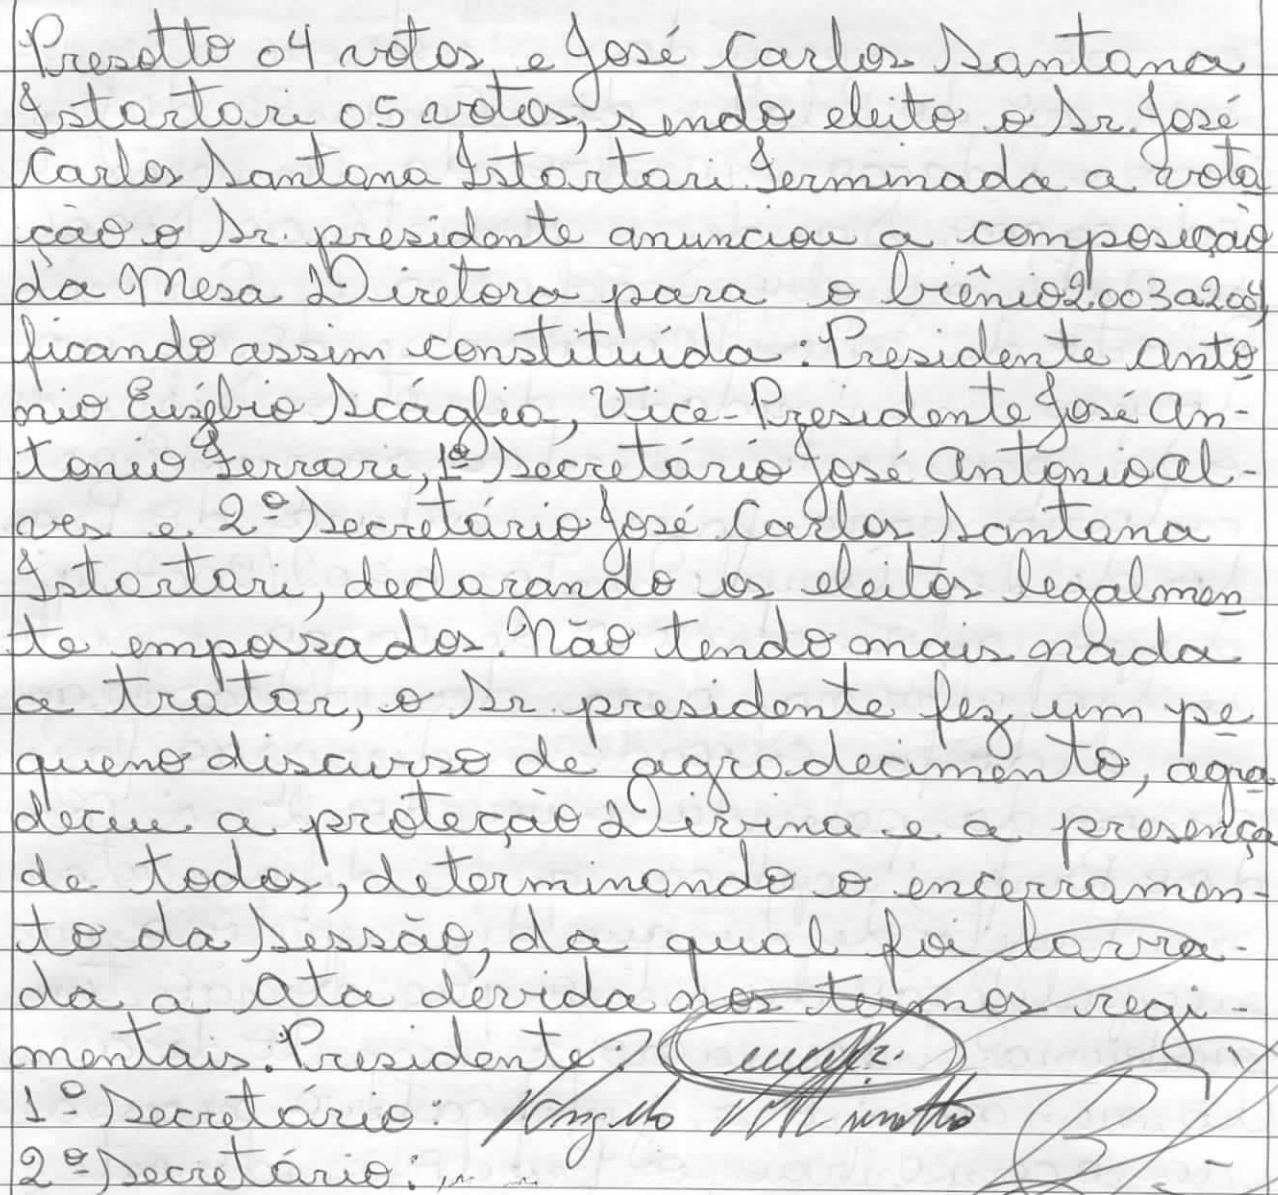 Presotto 04 votos e José Carlos Santana
Istartari 05 votos, sendo eleito o Sr. José
Carlos Santana Istartari. Terminada a vota
ção o Sr. presidente anunciou a composição
da Mesa Diretora para o biênio 2.003 a 2.004,
ficando assim constituída: Presidente Antô
nio Eusébio Scáglia, Vice-Presidente José An-
tonio Ferrari, 1º Secretário José Antonio Al-
ves e 2º Secretário José Carlos Santana
Istartari, declarando os eleitos legalmen
te empossados. Não tendo mais nada
a tratar, o Sr. presidente fez um pe
queno discurso de agradecimento, agra
deceu a proteção Divina e a presença
de todos, determinando o encerramen-
to da Sessão, da qual foi lavra-
da a Ata devida nos termos regi-
mentais. Presidente:
1º Secretário:
2º Secretário: